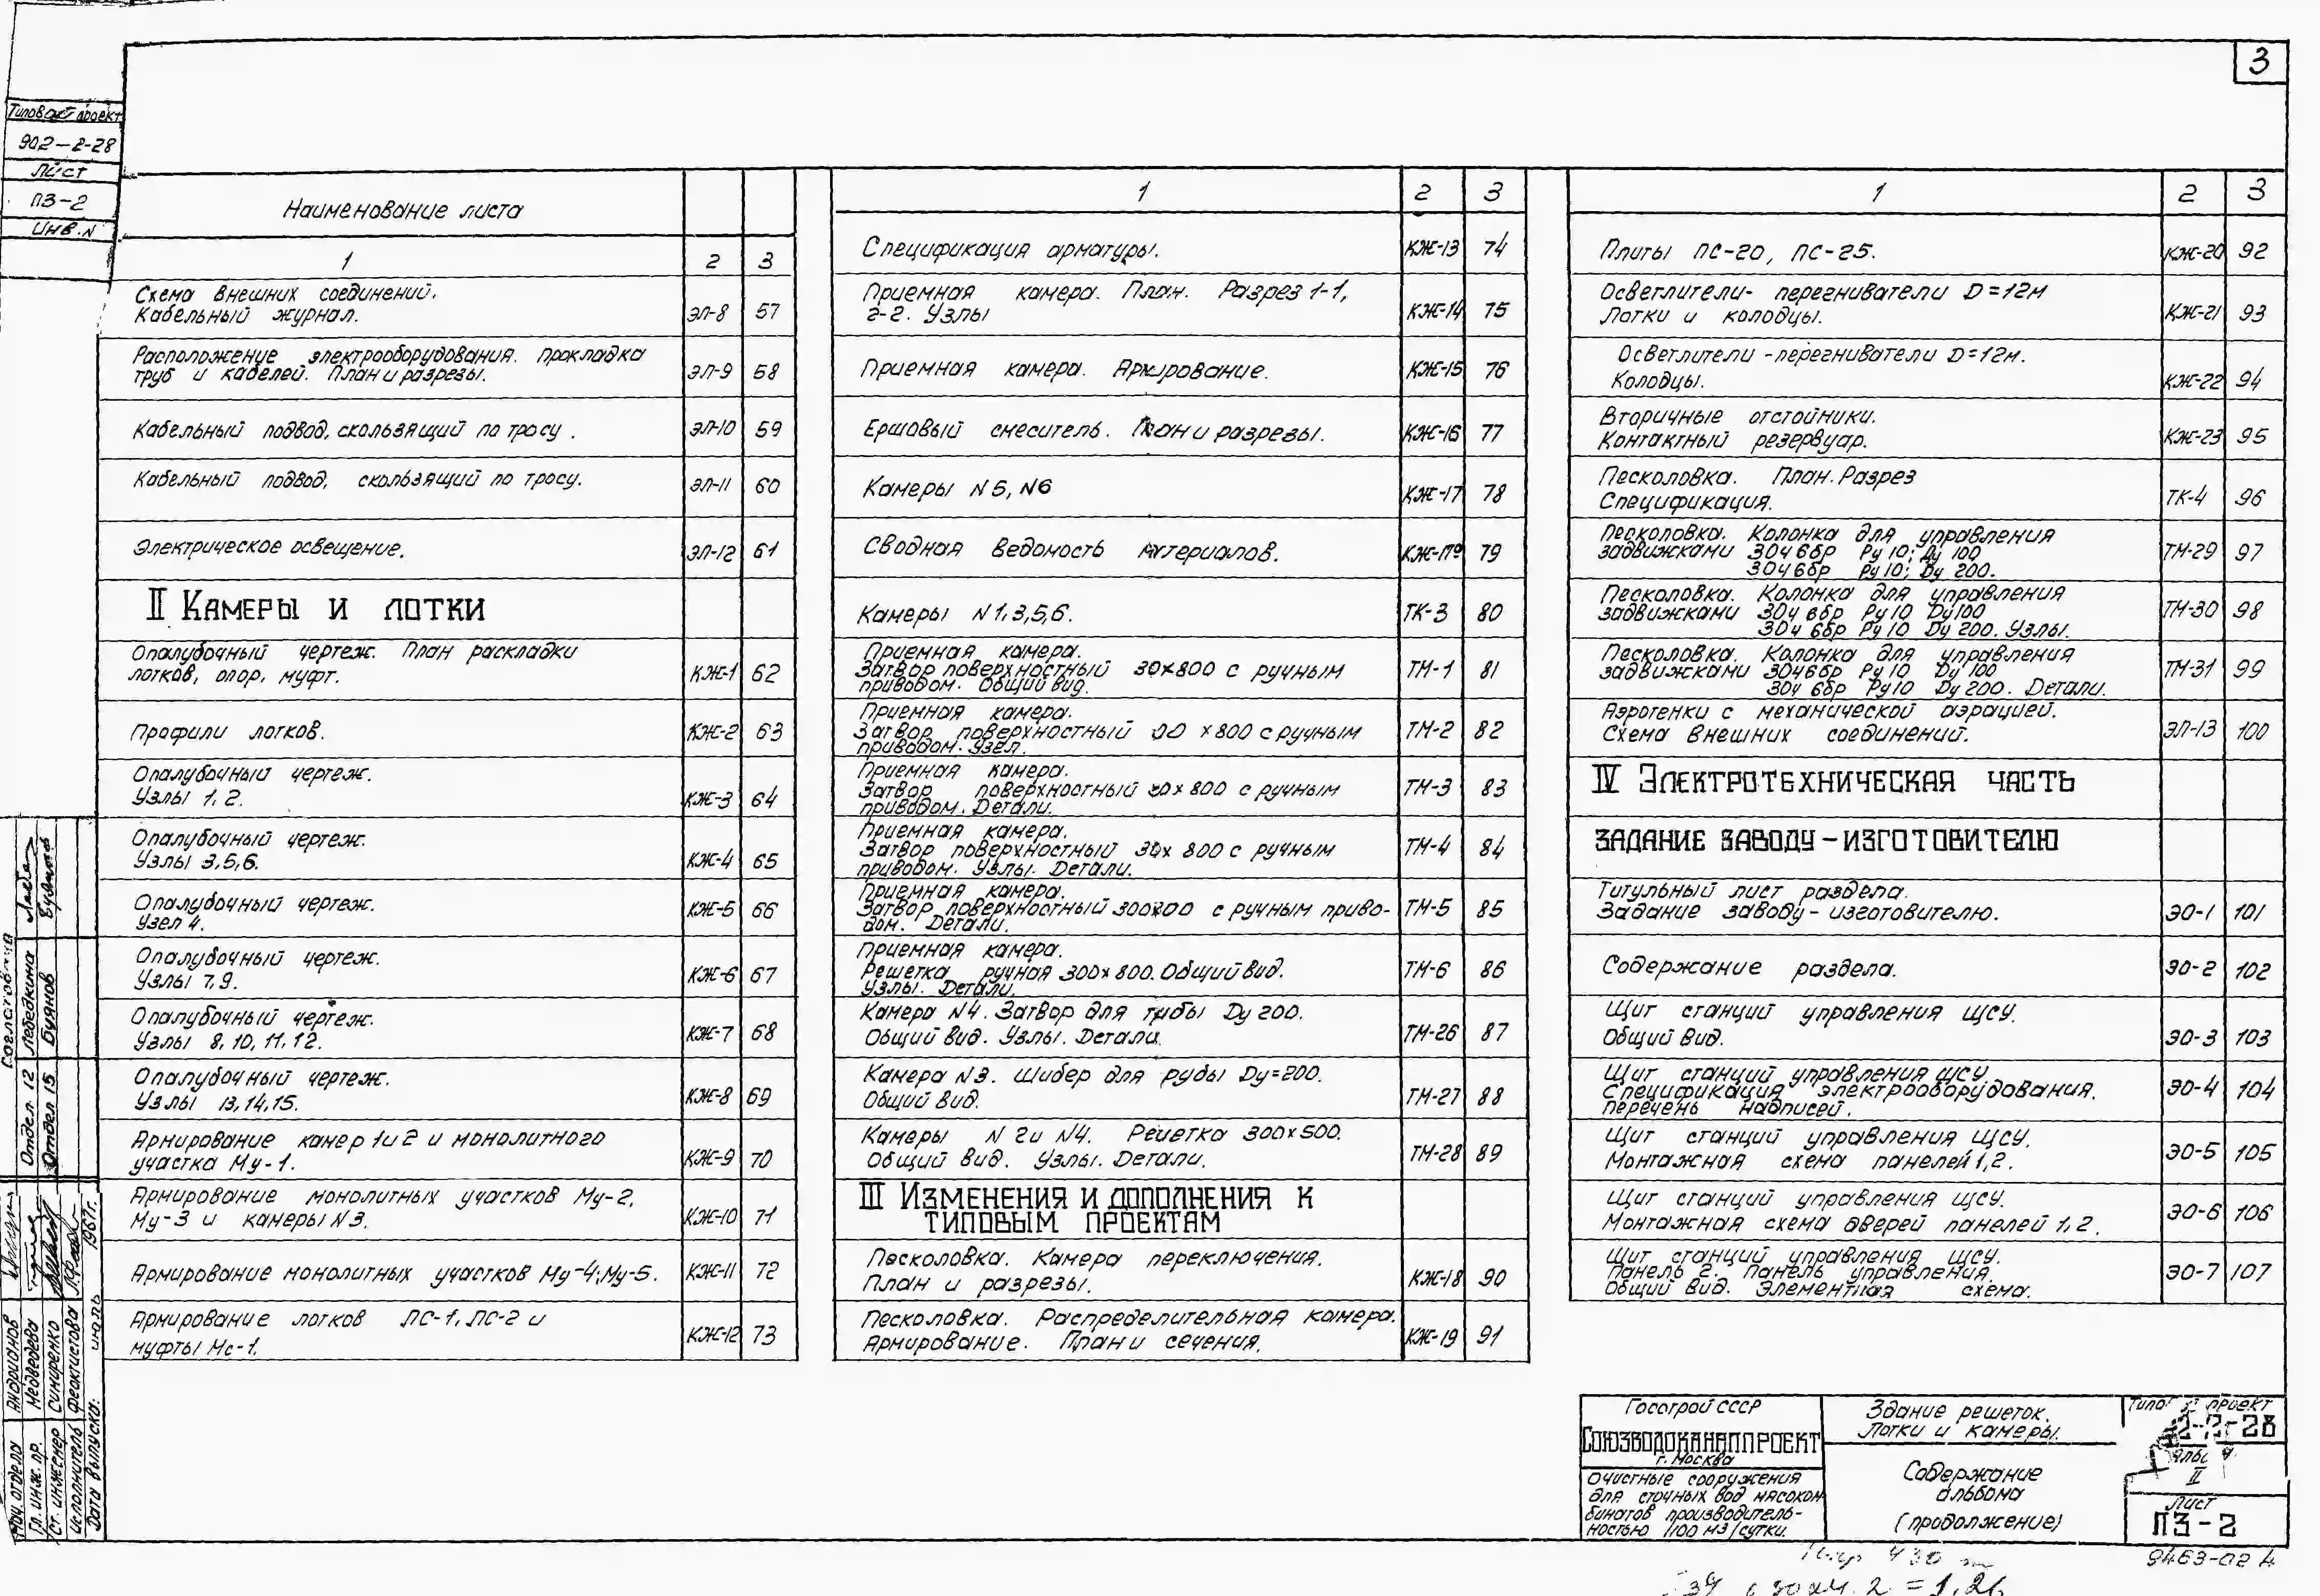 3
Типовой проект
902-2-28
Лист
ПЗ-2
Инв.N
Наименование листа
1 2 3
Схема внешних соединений.
Кабельный журнал. ЭЛ-8 57
Расположение электрооборудования. Прокладка
труб и кабелей. План и разрезы. ЭЛ-9 58
Кабельный подвод, скользящий по тросу. ЭЛ-10 59
Кабельный подвод, скользящий по тросу. ЭЛ-11 60
Электрическое освещение. ЭЛ-12 61
II Камеры и лотки
Опалубочный чертеж. План раскладки
лотков, опор, муфт. КЖ-1 62
Профили лотков. КЖ-2 63
Опалубочный чертеж.
Узлы 1, 2. КЖ-3 64
Опалубочный чертеж.
Узлы 3,5,6. КЖ-4 65
Опалубочный чертеж.
Узел 4. КЖ-5 66
Опалубочный чертеж.
Узлы 7,9. КЖ-6 67
Опалубочный чертеж.
Узлы 8, 10, 11, 12. КЖ-7 68
Опалубочный чертеж.
Узлы 13,14,15. КЖ-8 69
Армирование камер 1 и 2 и монолитного
участка Му-1. КЖ-9 70
Армирование монолитных участков Му-2,
Му-3 и камеры N3. КЖ-10 71
Армирование монолитных участков Му-4; Му-5. КЖ-11 72
Армирование лотков ЛС-1, ЛС-2 и
муфты Мс-1. КЖ-12 73
1 2 3
Спецификация арматуры. КЖ-13 74
Приемная камера. План. Разрез 1-1,
2-2. Узлы КЖ-14 75
Приемная камера. Армирование. КЖ-15 76
Ершовый смеситель. План и разрезы. КЖ-16 77
Камеры N5, N6 КЖ-17 78
Сводная ведомость материалов. КЖ-17а 79
Камеры N1,3,5,6. ТК-3 80
Приемная камера.
Затвор поверхностный 30х800 с ручным
приводом. Общий вид. ТМ-1 81
Приемная камера.
Затвор поверхностный х800 с ручным
приводом. Узел. ТМ-2 82
Приемная камера.
Затвор поверхностный х800 с ручным
приводом. Детали. ТМ-3 83
Приемная камера.
Затвор поверхностный 30х 800 с ручным
приводом. Узлы. Детали. ТМ-4 84
Приемная камера.
Затвор поверхностный с ручным приво-
дом. Детали. ТМ-5 85
Приемная камера.
Решетка ручная 300х800. Общий вид.
Узлы. Детали. ТМ-6 86
Камера N4. Затвор для трубы Ду 200.
Общий вид. Узлы. Детали. ТМ-26 87
Камера N3. Шибер для рубы Ду=200.
Общий вид. ТМ-27 88
Камеры N 2 и N4. Решетка 300х500.
Общий вид. Узлы. Детали. ТМ-28 89
III Изменения и дополнения к
типовым проектам
Песколовка. Камера переключения.
План и разрезы. КЖ-18 90
Песколовка. Распределительная камера.
Армирование. План и сечения. КЖ-19 91
1 2 3
Плиты ПС-20, ПС-25. КЖ-20 92
Осветлители- перегниватели D=12м
Лотки и колодцы. КЖ-21 93
Осветлители-перегниватели D=12м.
Колодцы. КЖ-22 94
Вторичные отстойники.
Контактный резервуар. КЖ-23 95
Песколовка. План. Разрез
Спецификация. ТК-4 96
Песколовка. Колонка для управления
задвижками 30ч6бр Ру10; Ду 100
30ч6бр Ру10; Ду 200. ТМ-29 97
Песколовка. Колонка для управления
задвижками 30ч 6бр Ру10 Ду100
30ч 6бр Ру10 Ду 200. Узлы. ТМ-30 98
Песколовка. Колонка для управления
задвижками 30ч6бр Ру10 Ду 100
30ч 6бр Ру10 Ду 200. Детали. ТМ-31 99
Аэротенки с механической аэрацией.
Схема внешних соединений. ЭЛ-13 100
IV Электротехническая часть
ЗАДАНИЕ ЗАВОДУ-ИЗГОТОВИТЕЛЮ
Титульный лист раздела.
Задание заводу-изготовителю. ЭО-1 101
Содержание раздела. ЭО-2 102
Щит станций управления ЩСУ.
Общий вид. ЭО-3 103
Щит станций управления ЩСУ
Спецификация электрооборудования.
Перечень надписей. ЭО-4 104
Щит станций управления ЩСУ.
Монтажная схема панелей 1,2. ЭО-5 105
Щит станций управления ЩСУ.
Монтажная схема дверей панелей 1,2. ЭО-6 106
Щит станций управления ЩСУ.
Панель 2. Панель управления.
Общий вид. Элементная схема. ЭО-7 107
Согласовано
Отдел 12 Лебедкина
Отдел 15 Буянов
Нач. отдела Андрианов
Гл. инж. пр. Медведева
Ст. инженер Синиренко
Исполнитель Феоктистова
Дата выпуска: июль 1967г.
Госстрой СССР
СОЮЗВОДОКАНАЛПРОЕКТ
г. Москва
Очистные сооружения
для сточных вод мясоком
бинатов производитель-
ностью 1100 м3/сутки.
Здание решеток.
Лотки и камеры.
Содержание
альбома
(продолжение)
проект
2-2-28
II
Лист
ПЗ-2
9463-02 4